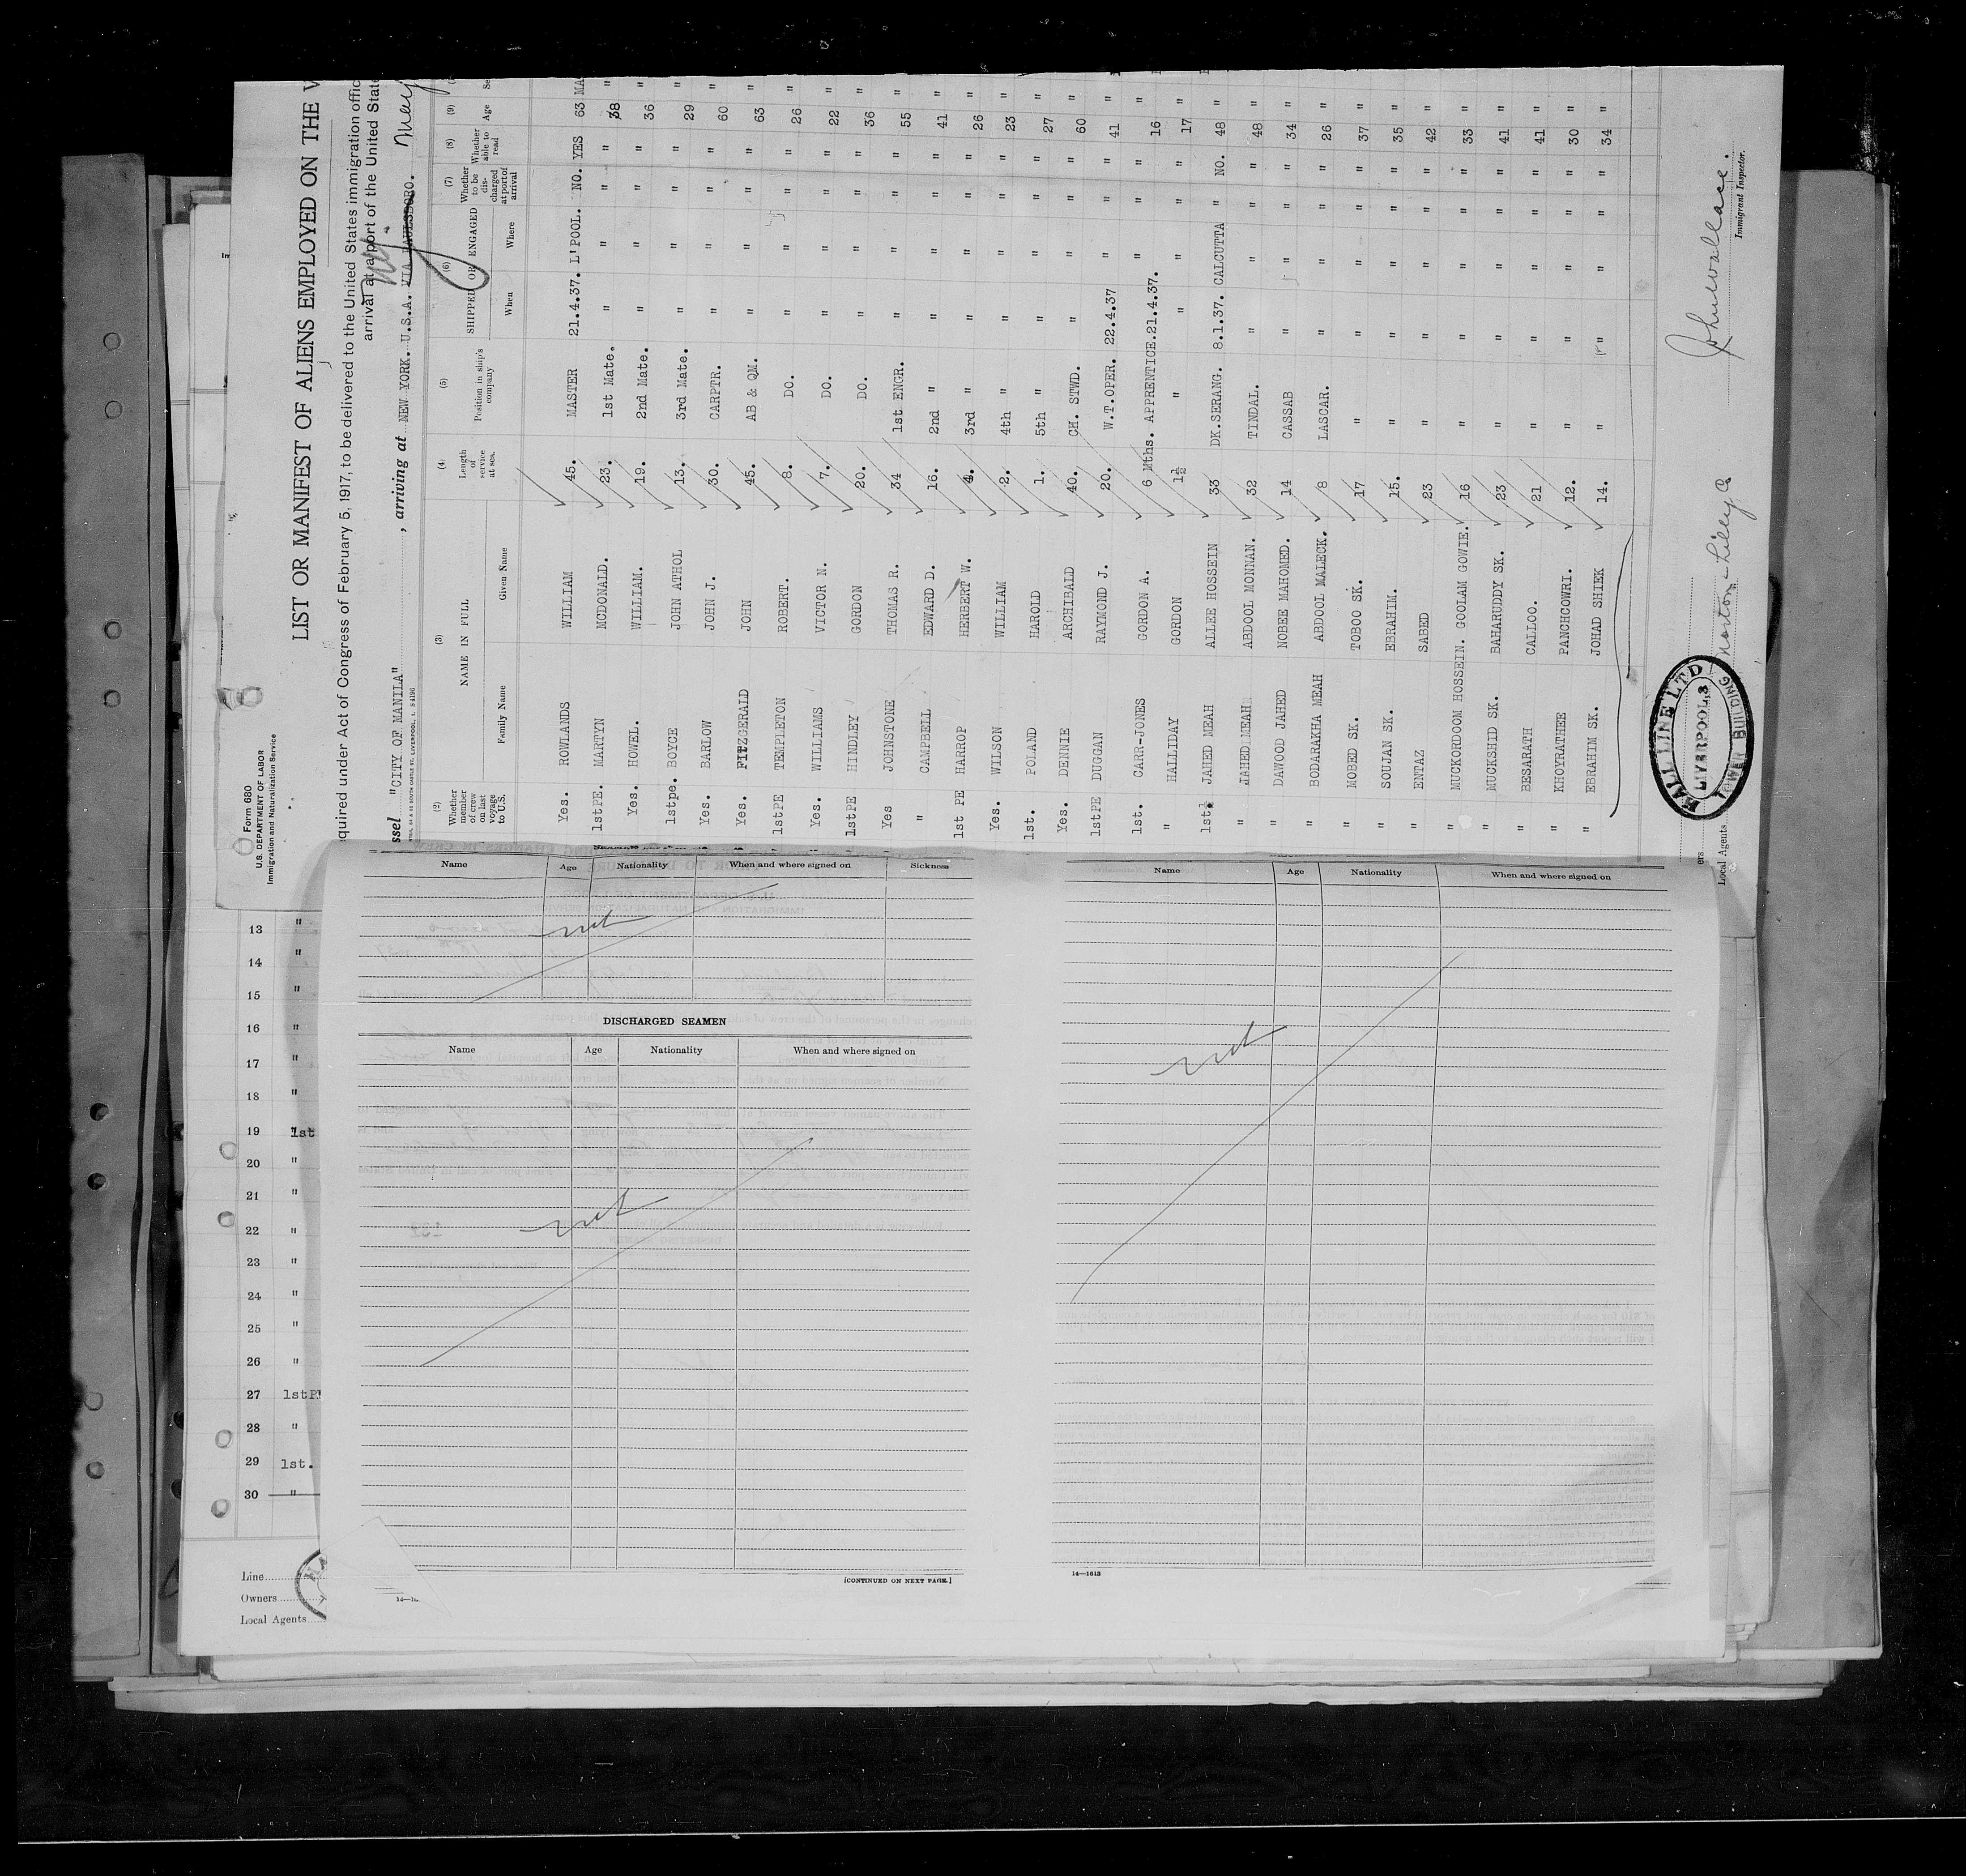 Form 680
U.S. DEPARTMENT OF LABOR
Immigration and Naturalization Service
LIST OR MANIFEST OF ALIENS EMPLOYED ON THE V
quired under Act of Congress of February 5, 1917, to be delivered to the United States immigration offic
arrival at a port of the United State
ssel "CITY OF MANILA" , arriving at NEW YORK. U.S.A. VIA PAULSBORO. May
(2) Whether member of crew on last voyage to U.S. (3) NAME IN FULL Family Name Given Name (4) Length of service at sea. (5) Position in ship's company (6) SHIPPED OR ENGAGED When Where (7) Whether to be discharged at port of arrival (8) Whether able to read (9) Age Se
Yes. ROWLANDS WILLIAM 45. MASTER 21.4.37. L'POOL. NO. YES 63 MA
1stPE. MARTYN MCDONALD. 23. 1st Mate. " " " " 38 "
Yes. HOWEL. WILLIAM. 19. 2nd Mate. " " " " 36 "
1stpe. BOYCE JOHN ATHOL 13. 3rd Mate. " " " " 29 "
Yes. BARLOW JOHN J. 30. CARPTR. " " " " 60 "
Yes. FITZGERALD JOHN 45. AB & QM. " " " " 63 "
1stPE TEMPLETON ROBERT. 8. DO. " " " " 26 "
Yes. WILLIAMS VICTOR N. 7. DO. " " " " 22 "
1stPE HINDLEY GORDON 20. DO. " " " " 36 "
Yes JOHNSTONE THOMAS R. 34 1st ENGR. " " " " 55 "
" CAMPBELL EDWARD D. 16. 2nd " " " " " 41 "
1st PE HARROP HERBERT W. 4. 3rd " " " " " 26 "
Yes. WILSON WILLIAM 2. 4th " " " " " 23 "
1st. POLAND HAROLD 1. 5th " " " " " 27 "
Yes. DENNIE ARCHIBALD 40. CH. STWD. " " " " 60 "
1stPE DUGAN RAYMOND J. 20. W.T.OPER. 22.4.37 " " " 41 "
1st. CARR-JONES GORDON A. 6 Mths. APPRENTICE. 21.4.37. " " " 16 "
" HALLIDAY GORDON 1½ " " " " " 17 "
1st JAHED MEAH ALLEE HOSSEIN 33 DK.SERANG. 8.1.37. CALCUTTA " NO. 48 "
" JAHED MEAH ABDOOL MONNAN. 32 TINDAL. " " " " 48 "
" DAWOOD JAHED NOBEE MAHOMED. 14 CASSAB " " " " 34 "
" BODARAKHA MEAH ABDOOL MALECK. 8 LASCAR. " " " " 26 "
" MOBED SK. TOBOO SK. 17 " " " " " 37 "
" SOUJAN SK. EBRAHIM. 15. " " " " " 35 "
" ENTAZ SABED 23 " " " " " 42 "
" MUCKORDOOM HOSSEIN. GOOLAM GOWIE. 16 " " " " " 33 "
" MUCKSHID SK. BAHARUDDY SK. 23 " " " " " 41 "
" BESARATH CALLOO. 21 " " " " " 41 "
" KHOYRATHEE PANCHCOWRI. 12. " " " " " 30 "
" EBRAHIM SK. JOHAD SHIEK 14. " " " " " 34 "
HALL LINE LTD
LIVERPOOL,3
TOWER BUILDING
Local Agents Norton Lilly Co
John Wallace.
Immigrant Inspector.
Name Age Nationality When and where signed on Sickness
DISCHARGED SEAMEN
Name Age Nationality When and where signed on
[CONTINUED ON NEXT PAGE.]
Name Age Nationality When and where signed on
14—1613
13 "
14 "
15 "
16 "
17 "
18 "
19 1st
20 "
21 "
22 "
23 "
24 "
25 "
26 "
27 1stP
28 "
29 1st.
30 "
Line
Owners
Local Agents